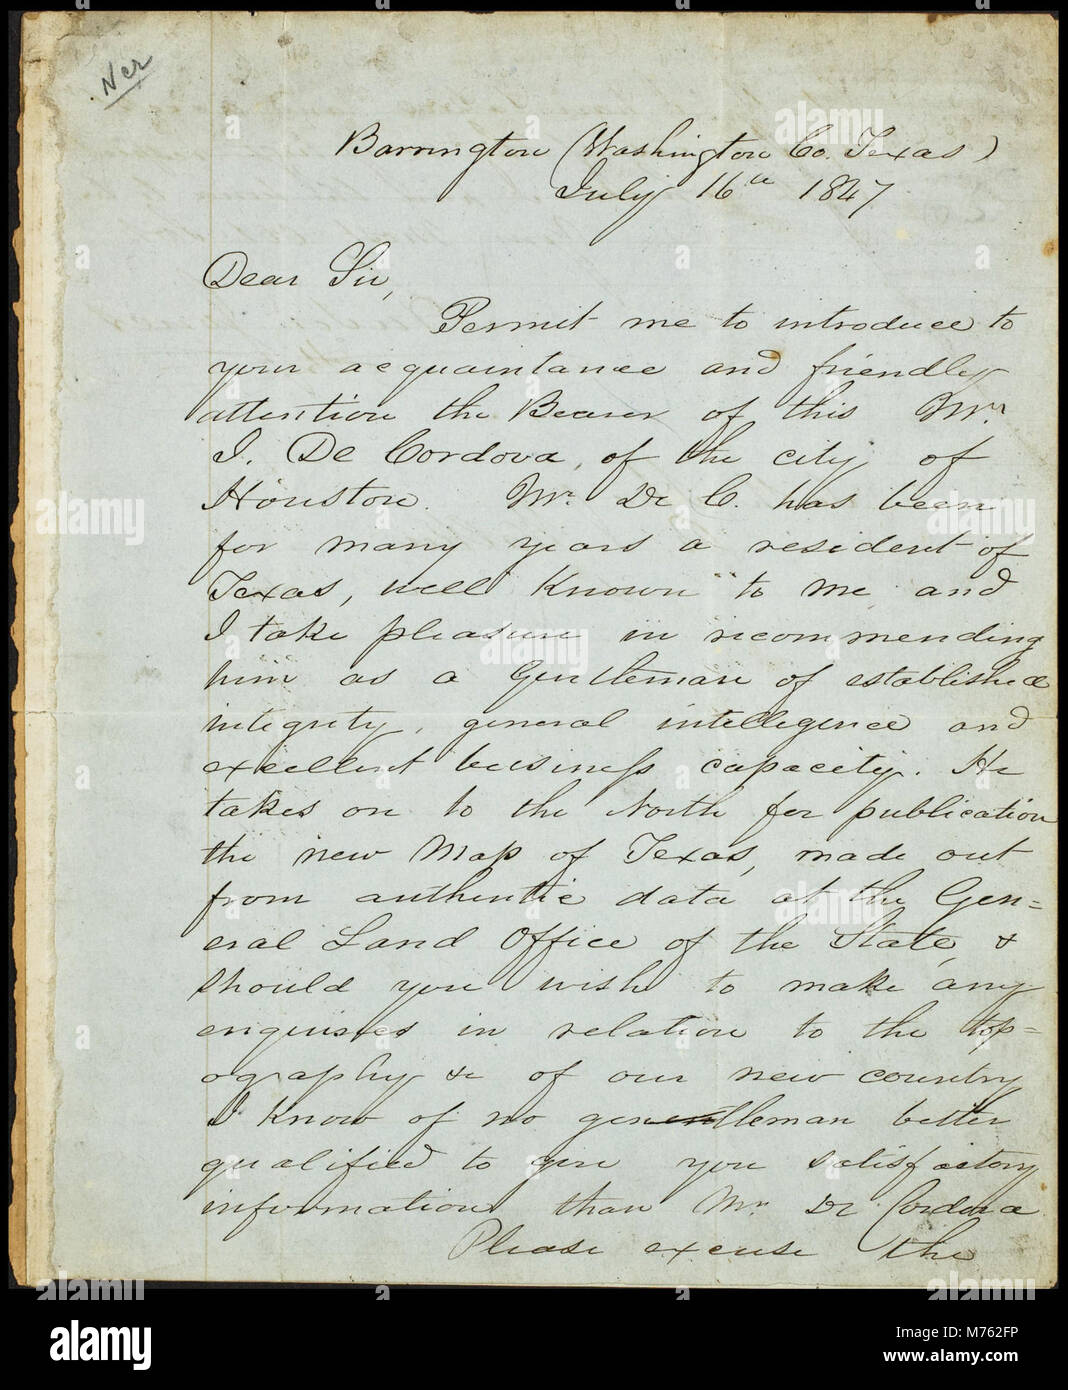 Barrington (Washington Co. Texas)
July 16th 1847
Dear Sir,
Permit me to introduce to
your acquaintance and friendly
attention the Bearer of this Mr.
J. De Cordova, of the city of
Houston. Mr. De C. has been
for many years a resident of
Texas, well known to me and
I take pleasure in recommending
him as a Gentleman of established
integrity, general intelligence and
excellent business capacity. He
takes on to the North for publication
the new Map of Texas, made out
from authentic data at the Gen=
eral Land Office of the State, &
should you wish to make any
enquiries in relation to the top=
ography &c of our new country
I know of no gentleman better
qualified to give you satisfactory
information than Mr. De Cordova
Please excuse the
alamy
Image ID: M762FP
www.alamy.com